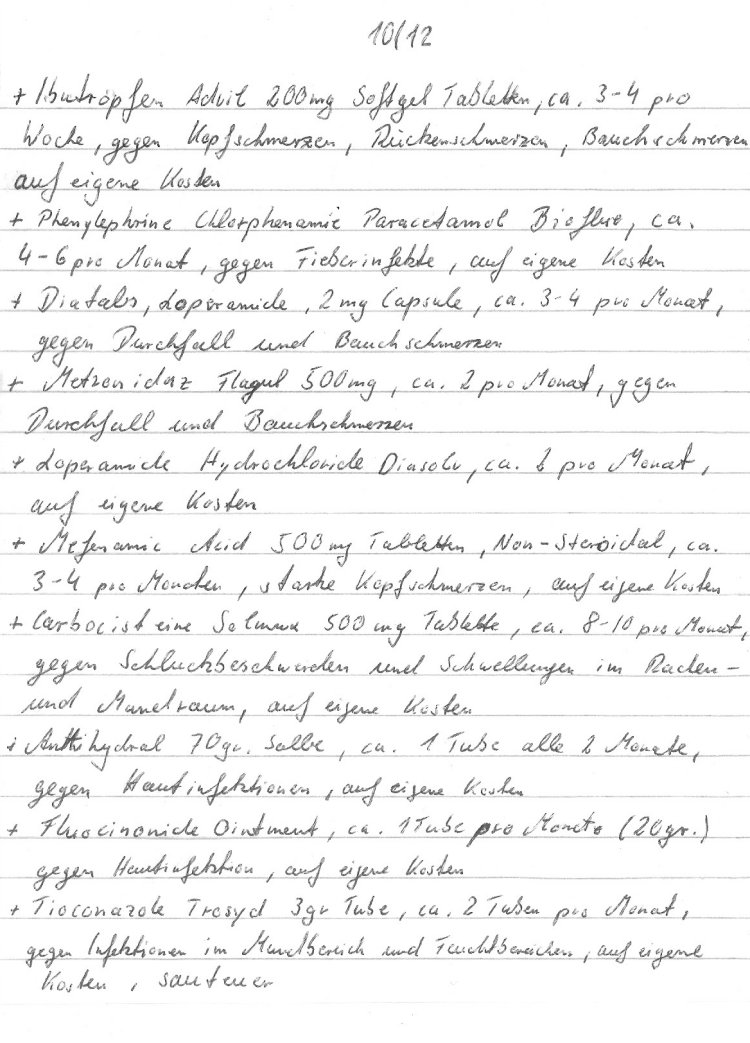 10/12
+ Ibutropfen Advil 200mg Softgel Tabletten, ca. 3-4 pro
Woche, gegen Kopfschmerzen, Rückenschmerzen, Bauchschmerzen
auf eigene Kosten
+ Phenylephrine Chlorphenamic Paracetamol Bioflue, ca.
4-6 pro Monat, gegen Fieberinfekte, auf eigene Kosten
+ Diatabs, Loperamide, 2mg Capsule, ca. 3-4 pro Monat,
gegen Durchfall und Bauchschmerzen
+ Metronidaz Flagul 500mg, ca. 2 pro Monat, gegen
Durchfall und Bauchschmerzen
+ Loperamide Hydrochloride Diasolv, ca. pro Monat,
auf eigene Kosten
+ Mefenamic Acid 500mg Tabletten, Non-Steroidal, ca.
3-4 pro Monaten, starke Kopfschmerzen, auf eigene Kosten
+ Carbocisteine 500mg Tablette, ca. 8-10 pro Monat,
gegen Schluckbeschwerden und Schwellungen im Rachen-
und Mandraum, auf eigene Kosten
+ Antihydral 70gr. Salbe, ca. 1 Tube alle 2 Monate,
gegen Hautinfektionen, auf eigene Kosten
+ Fluocinonide Ointment, ca. 1 Tube pro Monate (20gr.)
gegen Hautinfektion, auf eigene Kosten
+ Tioconazole Trosyd 3gr Tube, ca. 2 Tuben pro Monat,
gegen Infektionen im Mundbereich und Feuchtbereichen, auf eigene
Kosten, sauteuer